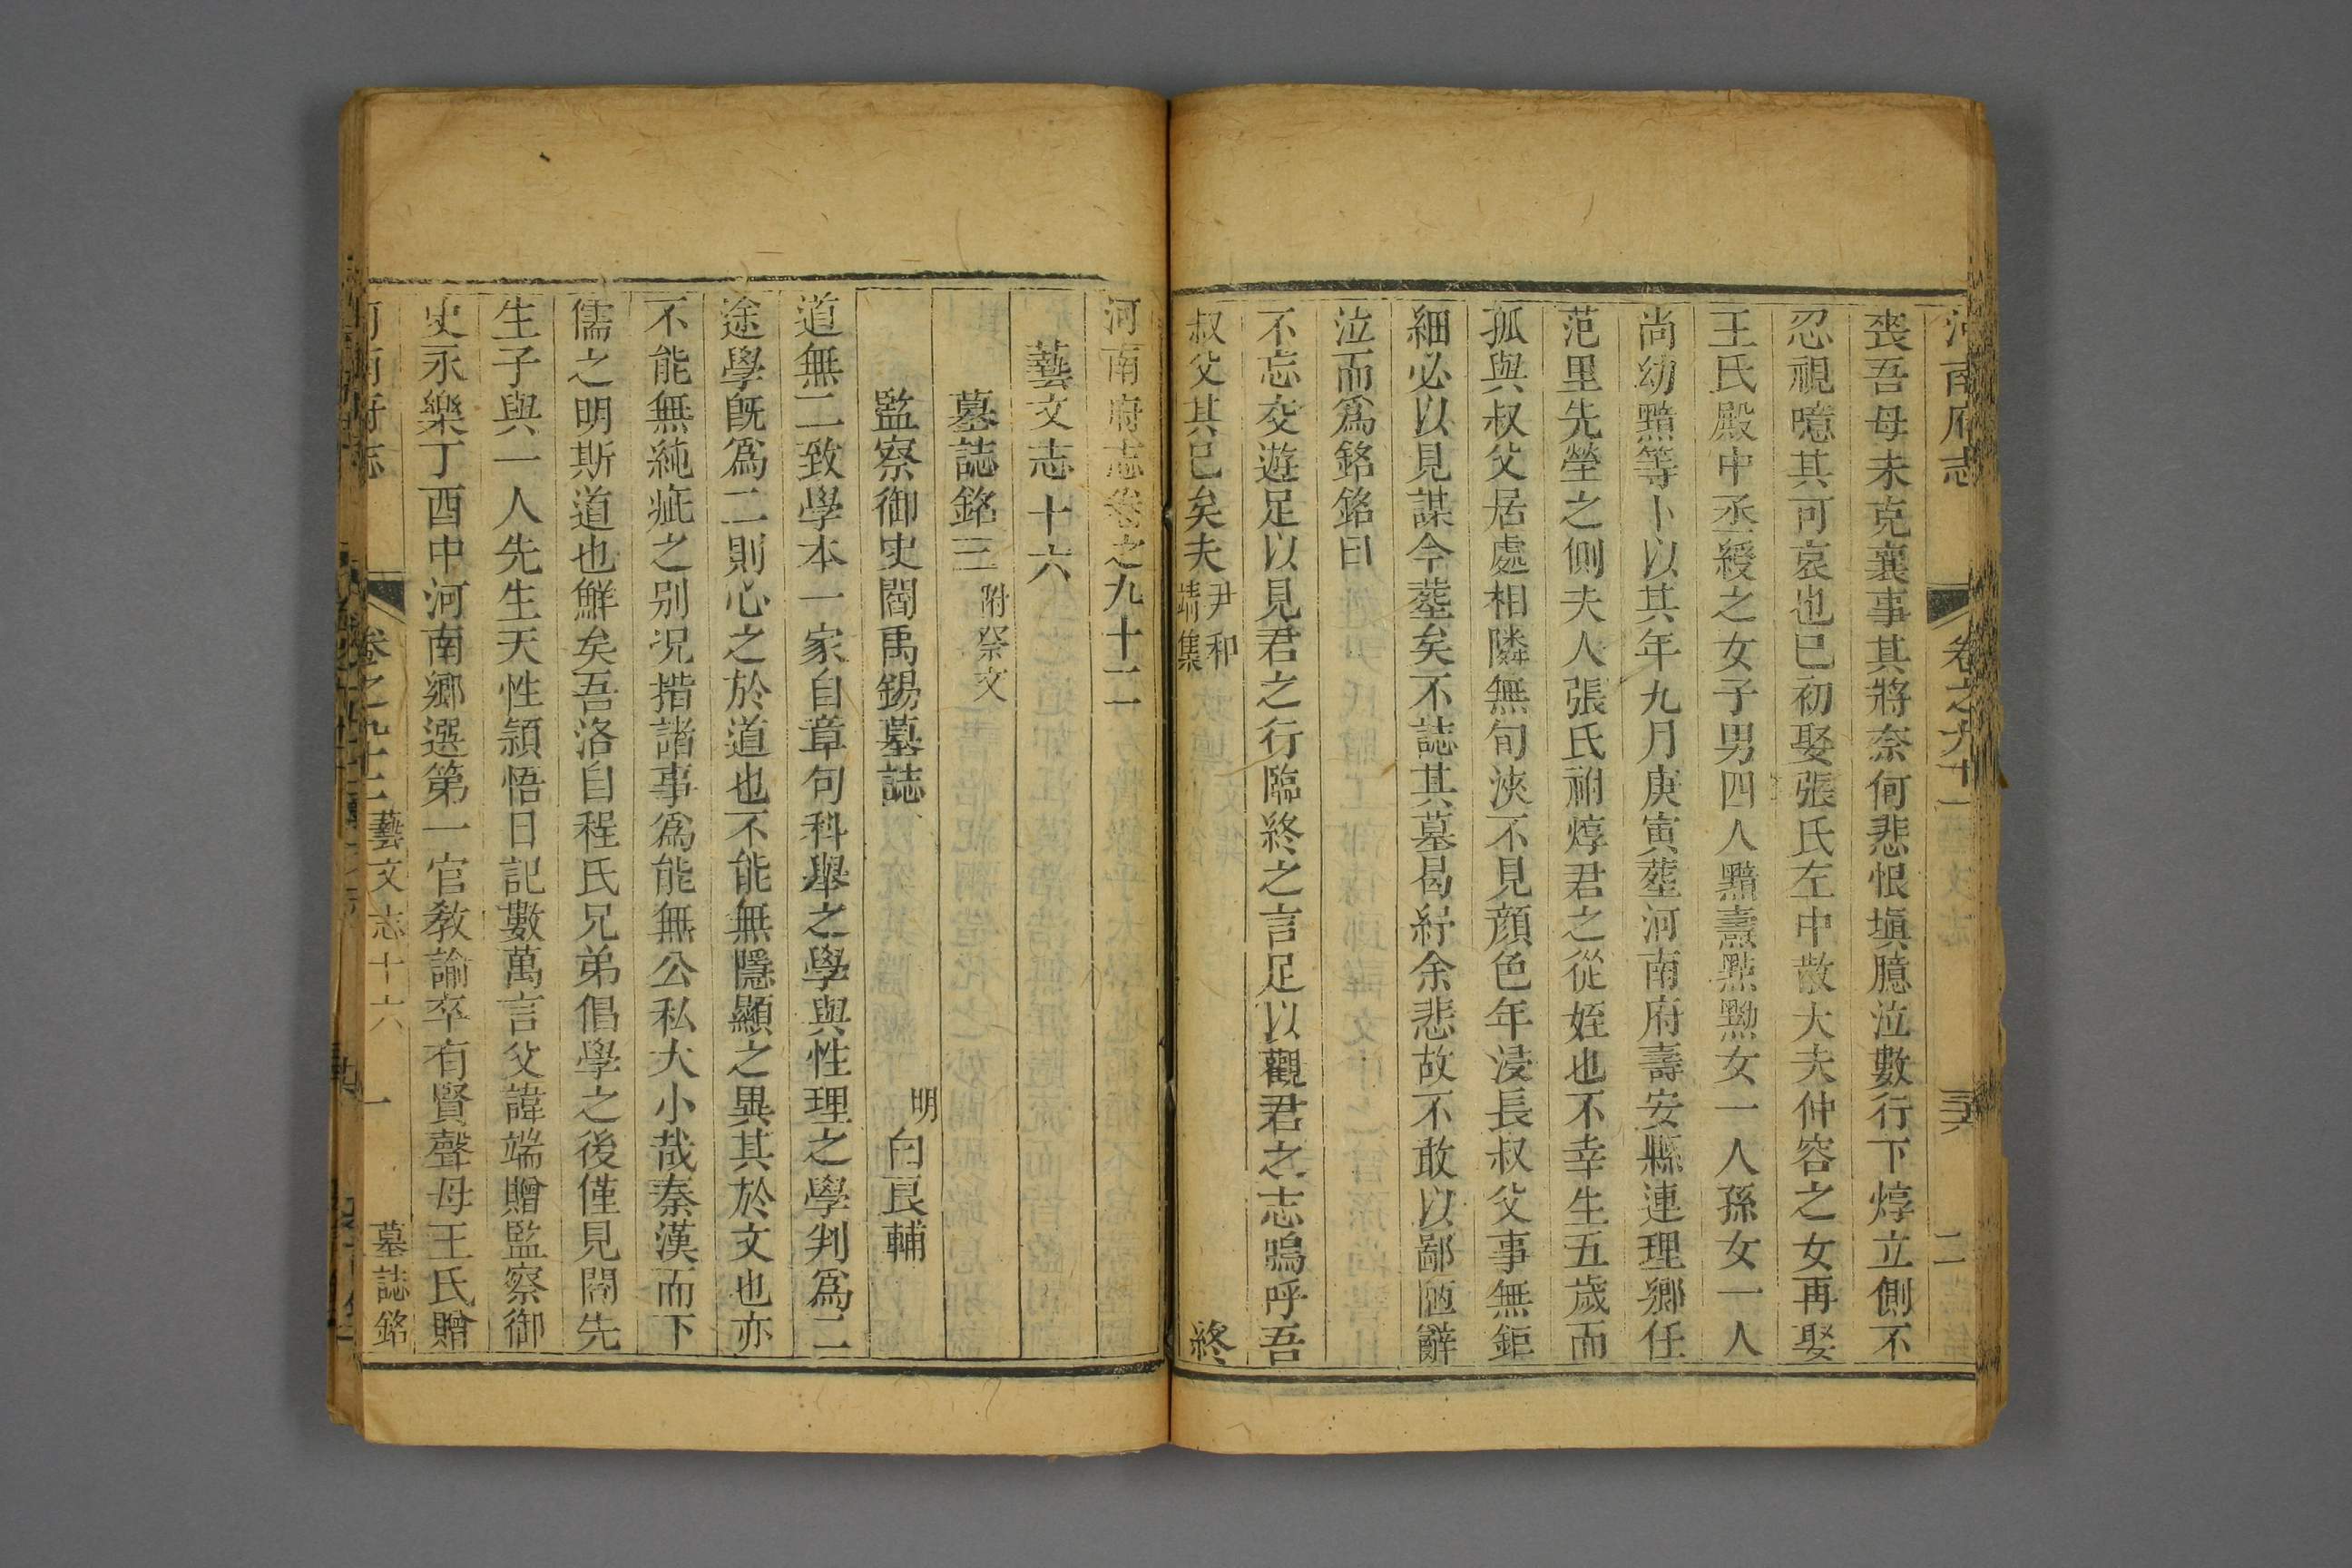 河南府志
卷之九十一
喪吾母未克襄事其將奈何悲恨塡臆泣數行下焞立側不
忍視噫其可哀也已初娶張氏左中散大夫仲容之女再娶
王氏殿中丞綬之女子男四人黯壽點黝女一人孫女一人
尚幼黯等卜以其年九月庚寅葬河南府壽安縣連理鄉任
范里先塋之側夫人張氏祔焞君之從姪也不幸生五歲而
孤與叔父居處相隣無旬浹不見顏色年浸長叔父事無鉅
細必以見謀今葬矣不誌其墓曷紓余悲故不敢以鄙陋辭
泣而爲銘銘曰
不忘交遊足以見君之行臨終之言足以觀君之志嗚呼吾
叔父其已矣夫 尹和靖集 終
河南府志卷之九十二
藝文志十六
墓誌銘三 附祭文
監察御史閻禹錫墓誌 明 白良輔
道無二致學本一家自章句科舉之學與性理之學判爲二
途學旣爲二則心之於道也不能無隱顯之異其於文也亦
不能無純疵之别况措諸事爲能無公私大小哉秦漢而下
儒之明斯道也鮮矣吾洛自程氏兄弟倡學之後僅見閻先
生子與一人先生天性頴悟日記數萬言父諱端贈監察御
史永樂丁酉中河南鄉選第一官敎諭卒有賢聲母王氏贈
河南府志 卷之九十二 藝文志十六 一 墓誌銘